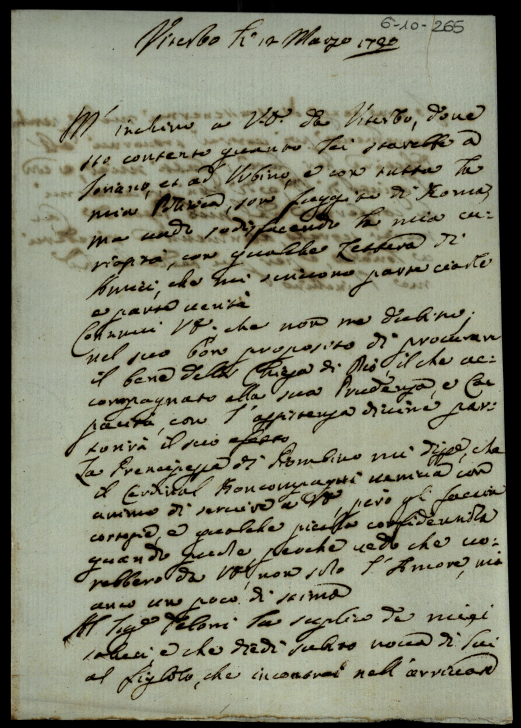 6-10-265
Viterbo li 12 Marzo 1720
M' inchino a V.E. da Viterbo, dove
sto contento quanto lei starebbe a
Soriano, et ad Urbino, e con tutta la
mia son fuggire di Roma,
ma vado sodisfacendo la mia cu-
riosità, con qualche lettera di
Amici, che mi scrivono parte ciarle
e parte verità
V.E. che non ne dubito;
nel suo bon proposito di procurare
il bene della Chiesa di Dio, il che ac-
compagnato alla sua Prudenza, e Ca-
pacità, con l' assistenza divina par-
torirà il suo effetto
La Prencipessa di Piombino mi disse, che
il Cardinal Boncompagni veniva con
animo di servire a V.E. però gli faccia
cortesie, e qualche piccola confidenza
quando puole perche vedo che vo-
rebbero da V.E. non solo l' Amore, mà
anco un poco di stima
Al Sig.r la suplico de miei
saluti e che diedi subito nova di lui
al figlolo, che incontrai nell' arrivare